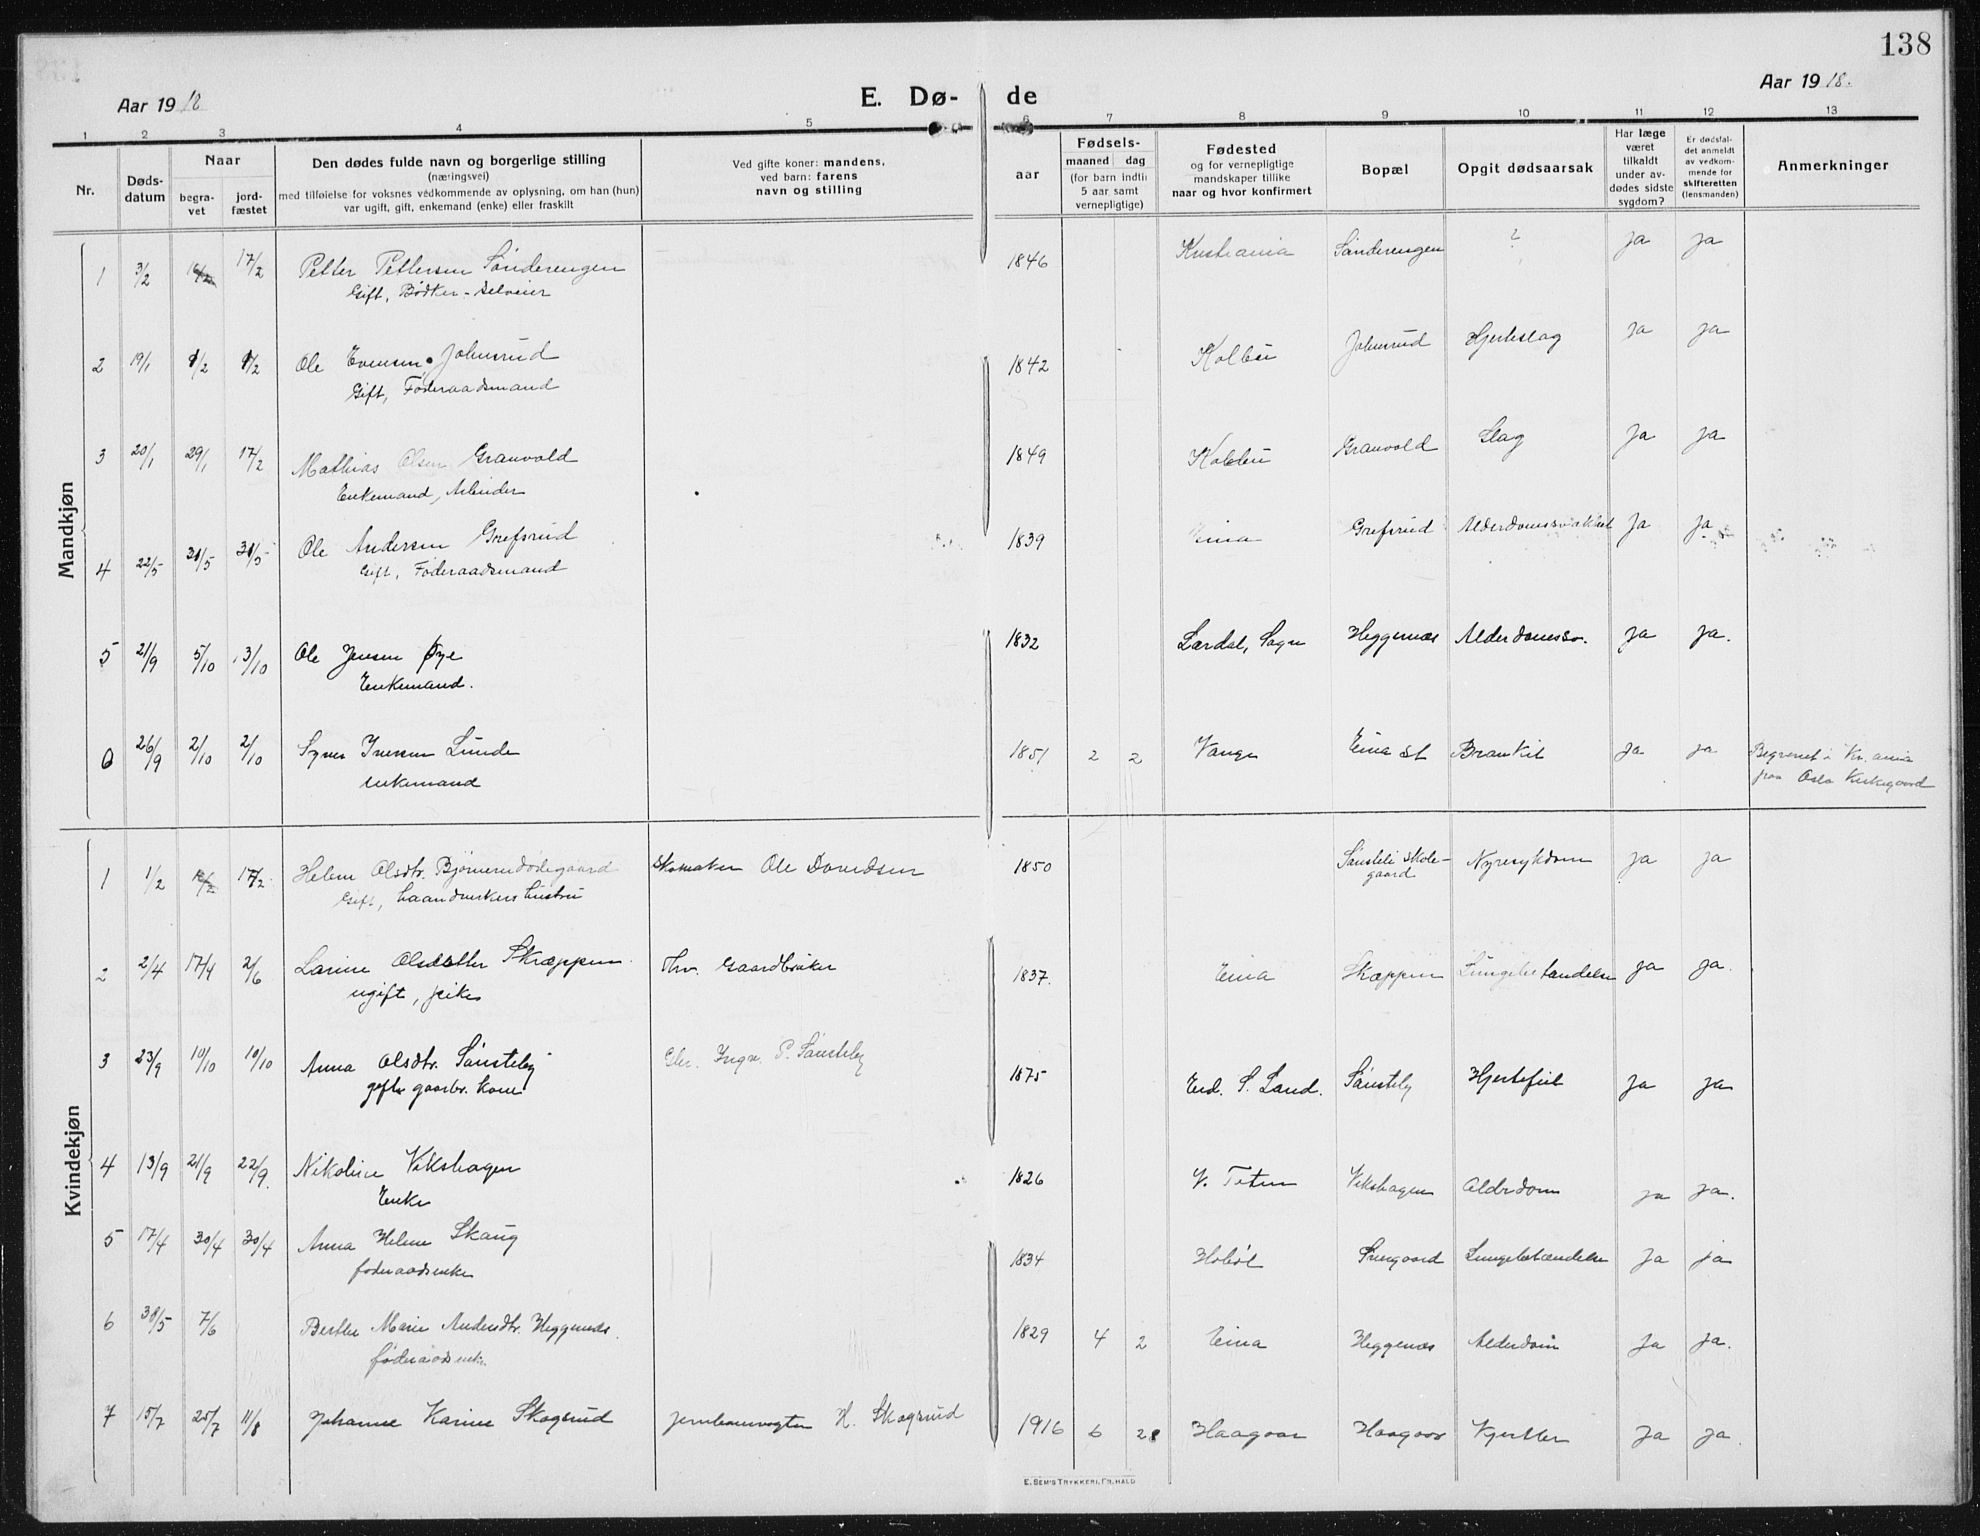 138
Aar 1918
E. Dø-de
Aar 1918.
1 2 3 4 5 6 7 8 9 10 11 12 13
Nr.
Døds-
datum
Naar
begra-
vet
jord-
fæstet
Den dødes fulde navn og borgerlige stilling
(næringsvei)
med tilføielse for voksnes vedkommende av oplysning, om han (hun)
var ugift, gift, enkemand (enke) eller fraskilt
Ved gifte koner: mandens,
ved barn: farens
navn og stilling
Fødsels-
aar
maaned dag
(for barn indtil
5 aar samt
vernepligtige)
Fødested
og for vernepligtige
mandskaper tillike
naar og hvor konfirmert
Bopæl
Opgit dødsaarsak
Har læge
været
tilkaldt
under av-
dødes sidste
sygdom?
Er dødsfal-
det anmeldt
av vedkom-
mende for
skifteretten
(lensmanden)
Anmerkninger
Mandkjøn
1 3/2 16/2 17/2 Petter Pettersen Sønderengen 1846 Kristiania Sønderengen ? Ja Ja
Gift, Bødker-selveier
2 19/1 8/2 8/2 Ole Evensen Johnsrud 1842 Kolbu Johnsrud Hjerteslag Ja Ja
Gift, Føderaadsmand
3 20/1 29/1 17/2 Mathias Olsen Granvold 1849 Kolbu Granvold Slag Ja Ja
Enkemand, Arbeider
4 22/5 31/5 31/5 Ole Andersen Grefsrud 1839 Eina Grefsrud Alderdomssvakhet Ja Ja
Gift, Føderaadsmand
5 21/9 5/10 13/10 Ole Jensen Øye 1832 Lærdal, Sogn Heggenæs Alderdomssv. Ja Ja.
Enkemand.
6 26/9 2/10 2/10 Syver Iversen Lunde 1851 2 2 Vangs Eina st Bronkit Ja Ja Begravet i Kr.ania
enkemand paa Oslo Kirkegaard
Kvindekjøn
1 1/2 16/2 17/2 Helene Olsdtr. Bjørnerudødegaard Skomaker Ole Davidsen 1850 Sønsteli skole-
gaard Nyresykdom Ja Ja
Gift, haandverkers hustru
2 2/4 17/4 2/6 Larine Olsdatter Skræppen Fhv. Gaardbruker 1837. Eina Skæppen Lungebetændelse Ja Ja.
ugift, pike
3 23/9 10/10 10/10 Anna Olsdtr. Sønsteby Gbr. Ingv. P. Sønsteby 1875 End. S. Land. Sønsteby Hjertefeil Ja Ja
gift gaarbr. kone
4 13/9 21/9 22/9. Nikoline Vikshagen 1826 V. Toten Vikshagen Alderdom Ja Ja.
Enke
5 17/4 30/4 30/4 Anna Helene Skaug 1834 Hobøl Lungebetændelse Ja ja
føderaadsenke
6 30/5 7/6 Berthe Marie Andersdtr. Heggenæs. 1829 4 2 Eina Heggenæs Alderdom Ja Ja.
føderaadsenke
7 15/7 25/7 11/8 Johanne Karine Skogsrud jernbanevogter H. Skogsrud 1916 6 28 Haagaar Haagaar Kjertler Ja Ja.
E. SEM'S TRYKKERI, FR.HALD